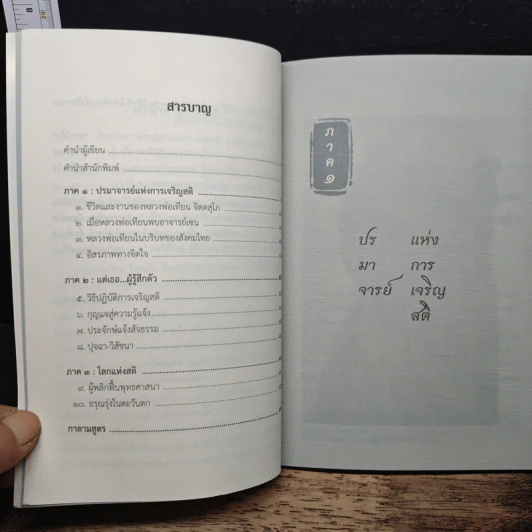 8
20
สารบาญ
คำนำผู้เขียน
คำนำสำนักพิมพ์
ภาค ๑ : ปรมาจารย์แห่งการเจริญสติ
๑. ชีวิตและงานของหลวงพ่อเทียน จิตตสุโภ
๒. เมื่อหลวงพ่อเทียนพบอาจารย์เซน
๓. หลวงพ่อเทียนในบริบทของสังคมไทย
๔. อิสรภาพทางจิตใจ
ภาค ๒ : แด่เธอ...ผู้รู้สึกตัว
๕. วิธีปฏิบัติการเจริญสติ
๖. กุญแจสู่ความรู้แจ้ง
๗. ประจักษ์แจ้งสัจธรรม
๘. ปุจฉา-วิสัชนา
ภาค ๓ : โลกแห่งสติ
๙. ผู้พลิกฟื้นพุทธศาสนา
๑๐. อรุณรุ่งในตะวันตก
กาลามสูตร
ภาค๑
ปร
มา
จารย์
แห่ง
การ
เจริญ
สติ